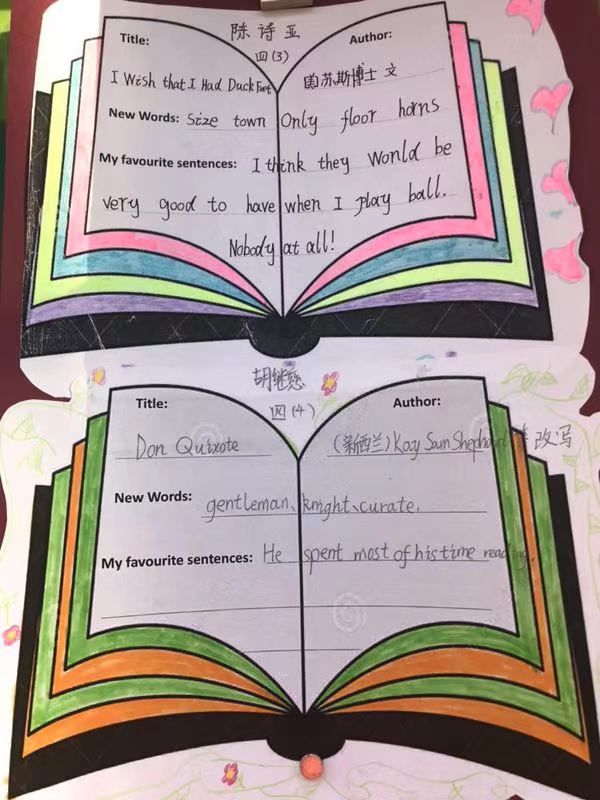 陈诗亚
四(3)
Title:
Author:
I Wish that I Had Duck Feet
(美)苏斯博士 文
New Words: Size town Only floor horns
My favourite sentences: I think they Wonld be
very good to have when I play ball.
Nobody at all!
胡继慈
四(4)
Title:
Author:
Don Quixote
(新西兰) Kay Sam Shephard 等 改写
New Words: gentleman、knight、curate.
My favourite sentences: He spent most of his time reading.